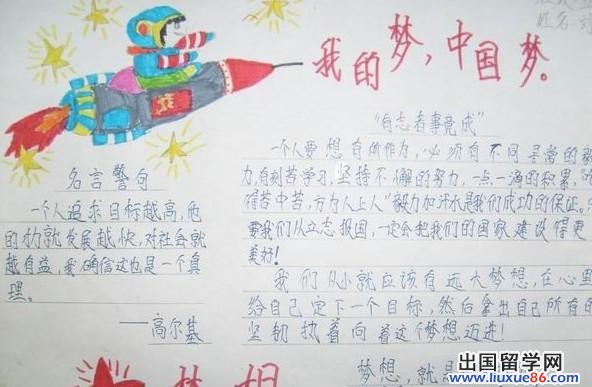 我的梦，中国梦。
姓名：
名言警句
一个人追求目标越高，他
的才就发展越快，对社会就
越有益，我确信这也是一个真
理。
——高尔基
“有志者事竟成”
一个人要想有所作为，必须有不同寻常的毅
力，有刻苦学习，坚持不懈的努力，一点一滴的积累，“吃
得苦中苦，方为人上人”毅力加汗水是我们成功的保证。只
要我们从立志报国，一定会把我们的国家建设得更
美好！
我们从小就应该有远大梦想，在心里
给自己定下一个目标，然后拿出自己所有的
坚韧执着向着这个梦想迈进！
梦想，就是
梦
出国留学网
www.liuxue86.com